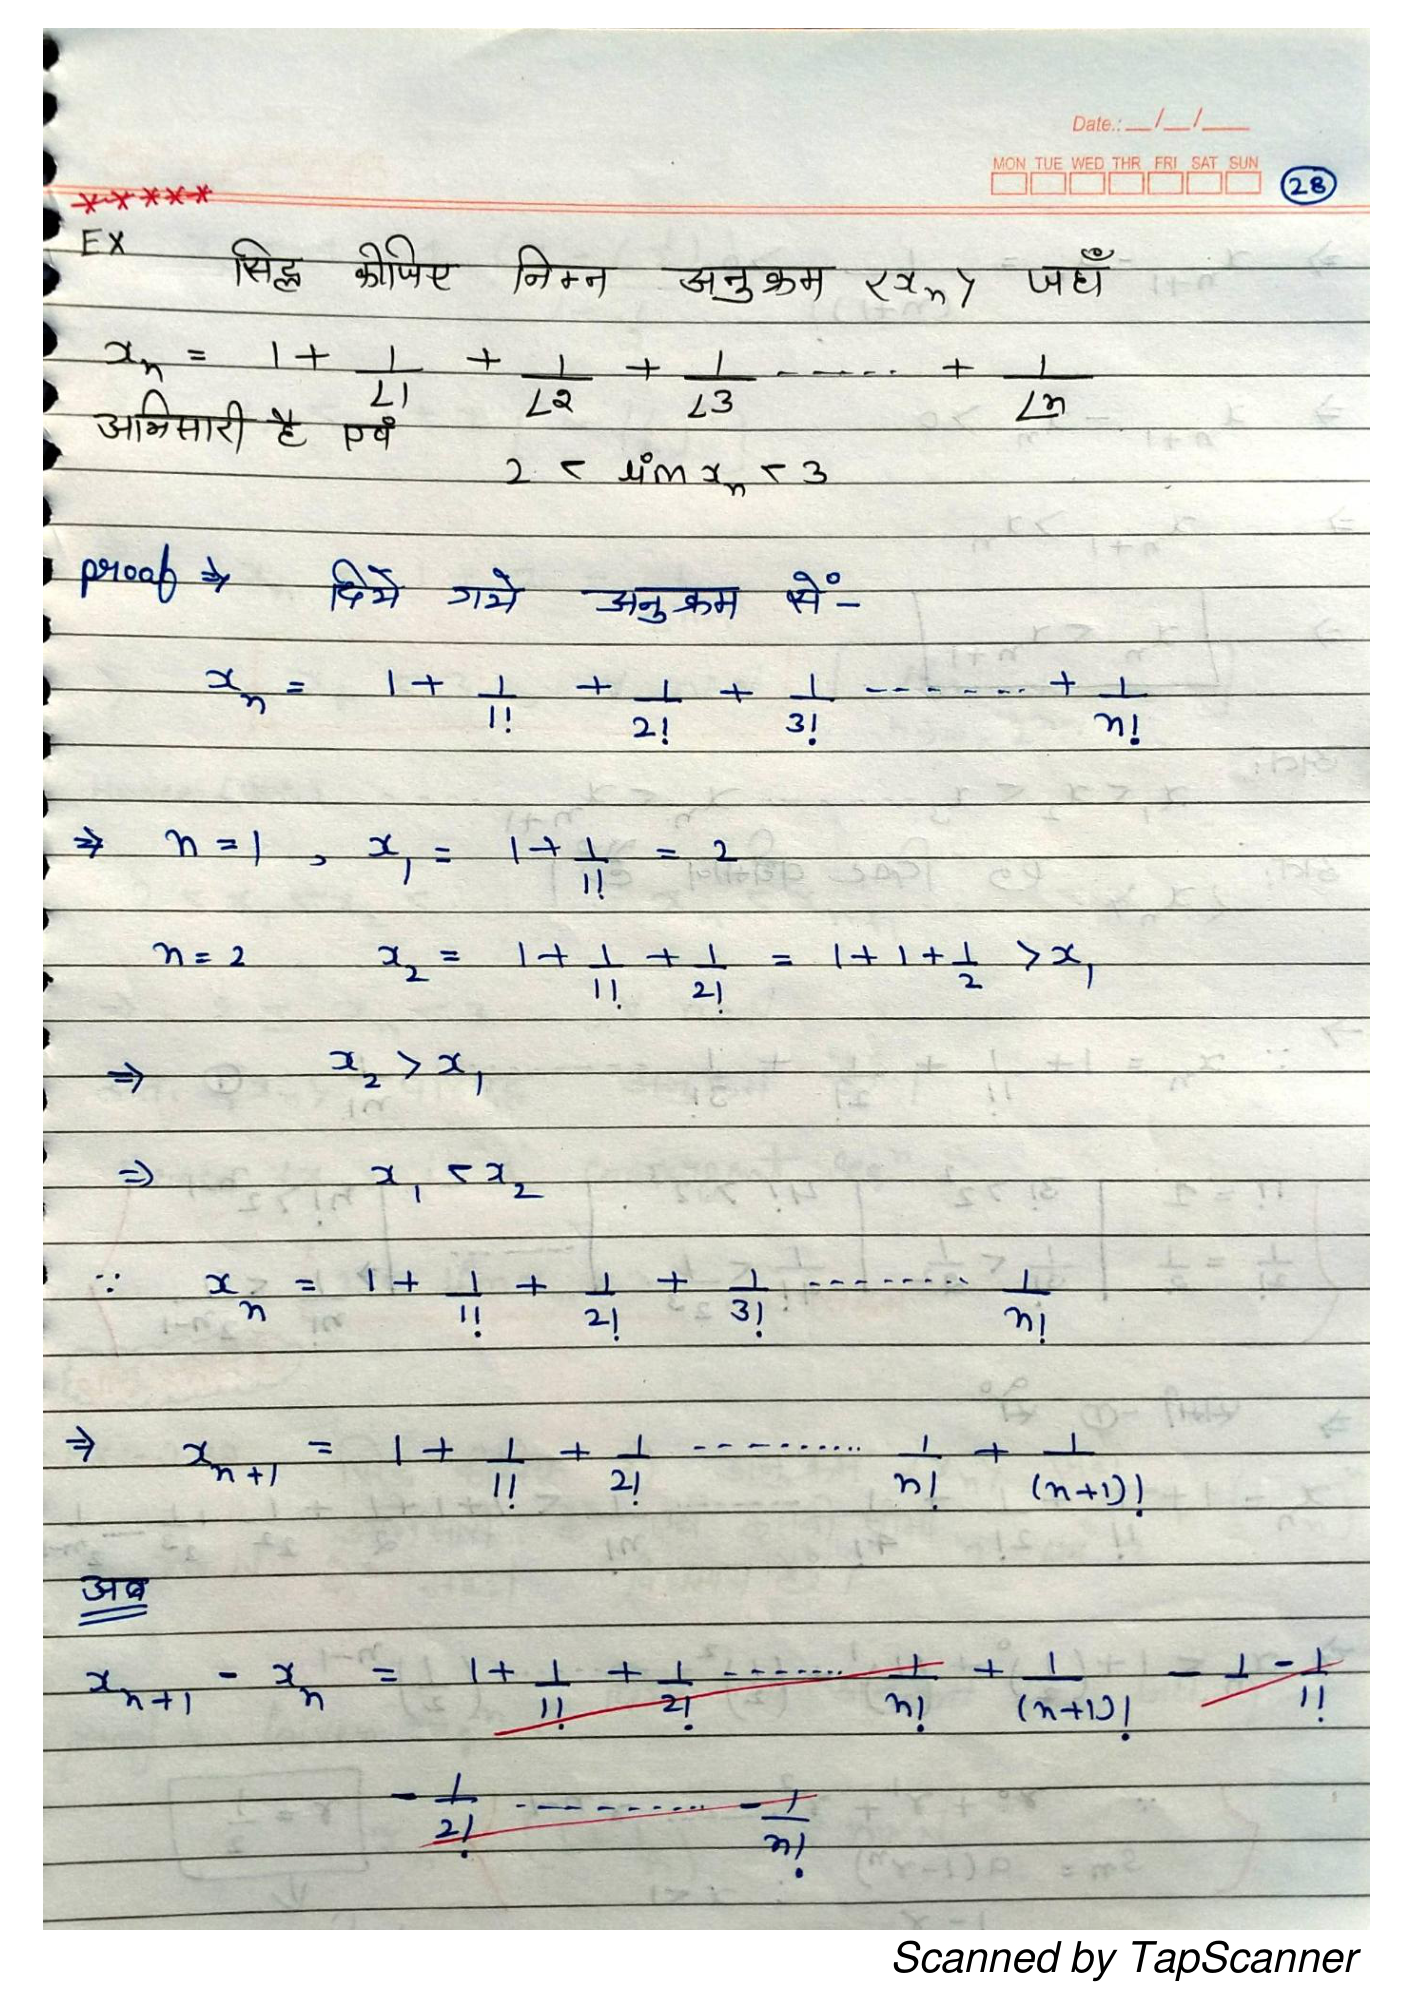 Date.: __/__/___
MON TUE WED THR FRI SAT SUN
28
*****
EX सिद्ध कीजिए निम्न अनुक्रम <xₙ> जहाँ
xₙ = 1 + 1/∠1 + 1/∠2 + 1/∠3 ------ + 1/∠n
अभिसारी है एवं
2 < lim xₙ < 3
proof ⇒ दिये गये अनुक्रम सें -
xₙ = 1 + 1/1! + 1/2! + 1/3! ------- + 1/n!
⇒ n = 1 , x₁ = 1 + 1/1! = 2
n = 2 x₂ = 1 + 1/1! + 1/2! = 1 + 1 + 1/2 > x₁
⇒ x₂ > x₁
⇒ x₁ < x₂
∵ xₙ = 1 + 1/1! + 1/2! + 1/3! --------- 1/n!
⇒ xₙ₊₁ = 1 + 1/1! + 1/2! --------- 1/n! + 1/(n+1)!
अब
xₙ₊₁ - xₙ = 1 + 1/1! + 1/2! ------- 1/n! + 1/(n+1)! - 1 - 1/1!
- 1/2! --------- - 1/n!
Scanned by TapScanner